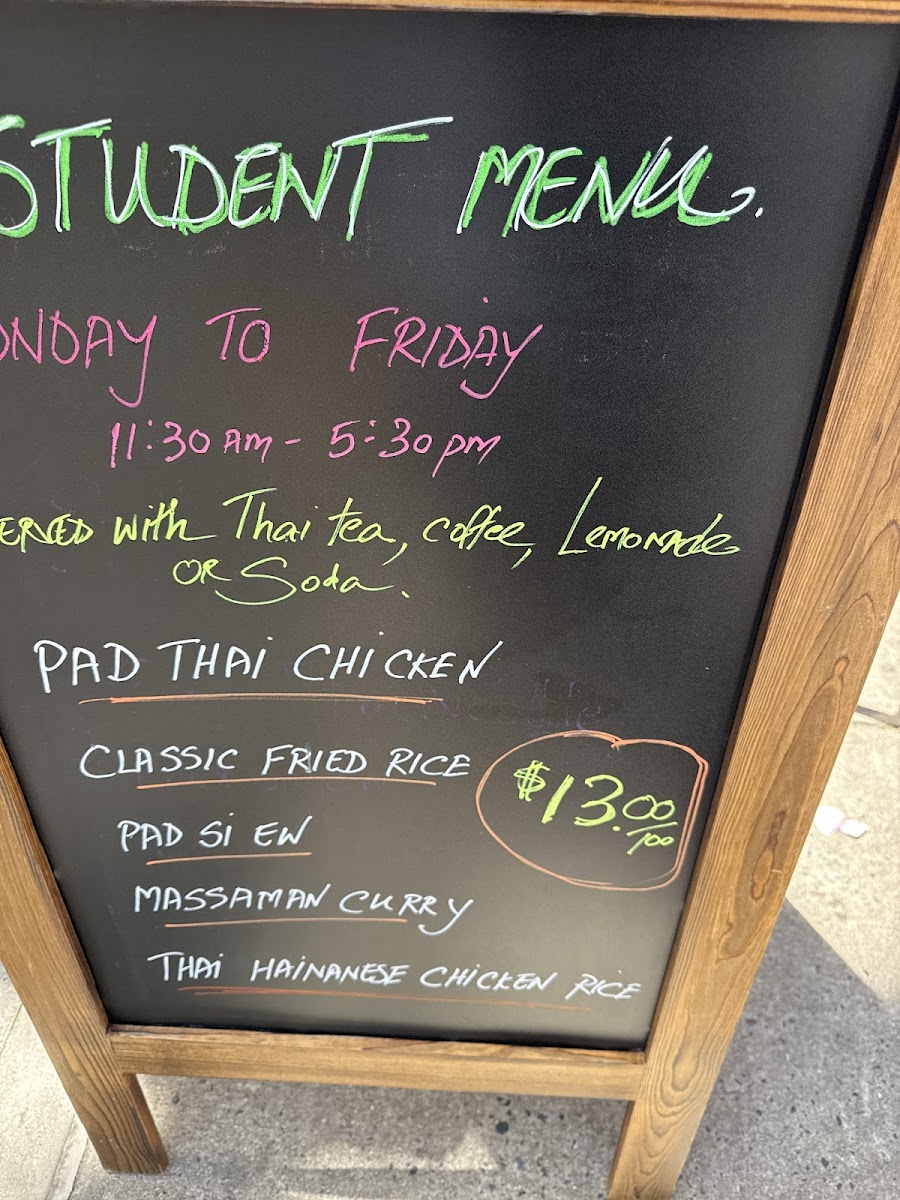 STUDENT MENU.
ONDAY TO FRIDAY
11:30 AM - 5:30 pm
ERVED with Thai tea, coffee, Lemonade
OR Soda.
PAD THAI CHICKEN
CLASSIC FRIED RICE
$13.00/100
PAD SI EW
MASSAMAN CURRY
THAI HAINANESE CHICKEN RICE